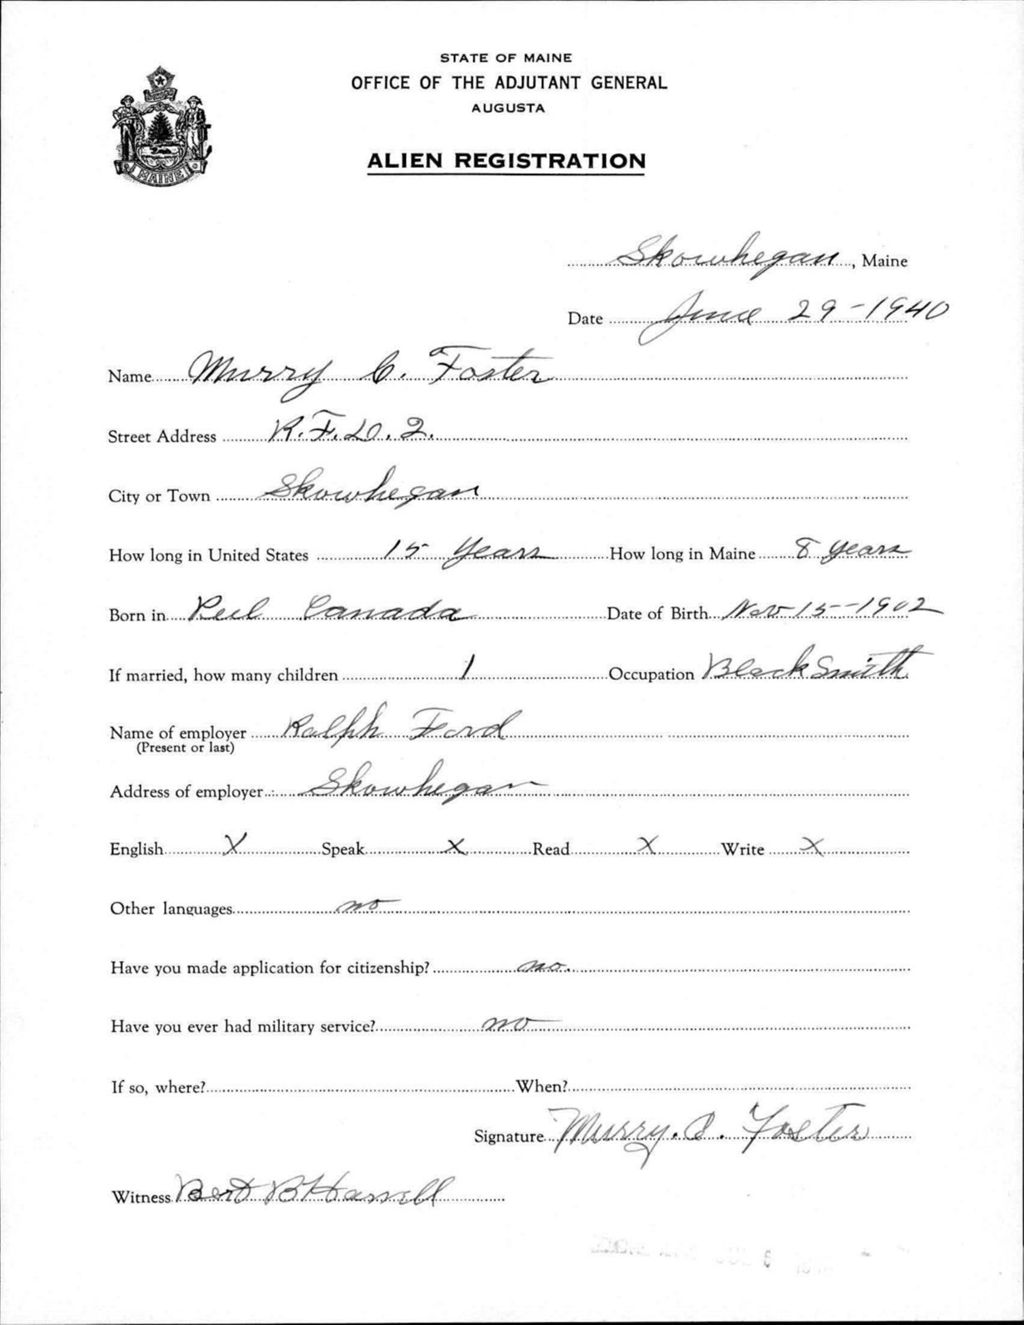 STATE OF MAINE
OFFICE OF THE ADJUTANT GENERAL
AUGUSTA
ALIEN REGISTRATION
MAINE
Skowhegan, Maine
Date June 29-1940
Name Murry C. Foster
Street Address R.F.D. 2.
City or Town Skowhegan
How long in United States 15 years How long in Maine 8 years
Born in Peel Canada Date of Birth Nov-15-1902
If married, how many children 1 Occupation BlackSmith
Name of employer Ralph Ford
(Present or last)
Address of employer Skowhegan
English X Speak X Read X Write X
Other languages no
Have you made application for citizenship? no.
Have you ever had military service? no
If so, where? When?
Signature Murry. C. Foster
Witness Bert B